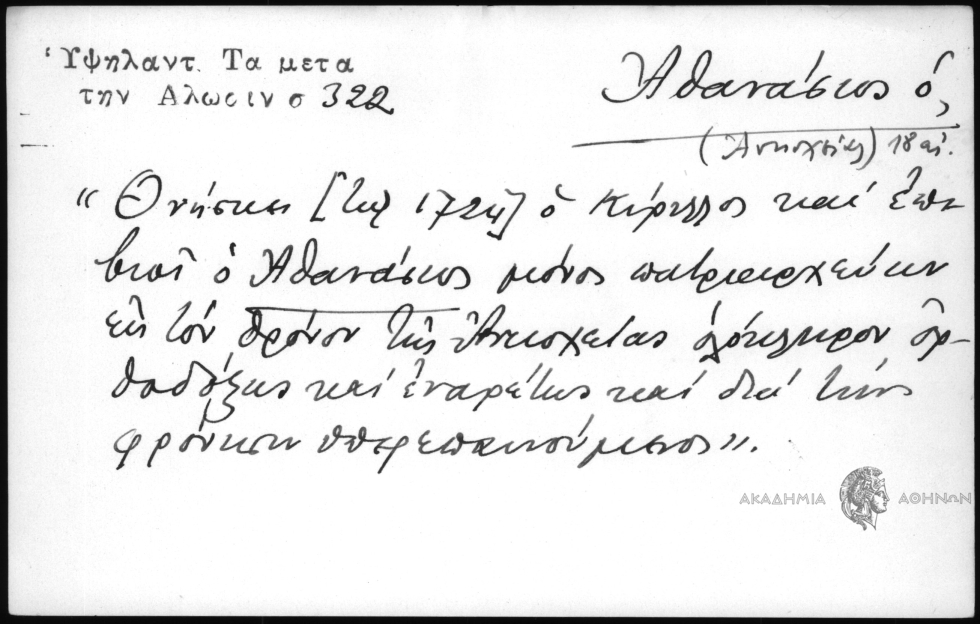 Ὑψηλαντ. Τα μετα
την Αλωσιν σ 322
Ἀθανάσιος ὁ,
(Ἀντιοχείας) 18 αἰ.
“ Θνήσκει [τῷ 1724] ὁ Κύριλλος καὶ ἐπι-
βιοῖ ὁ Ἀθανάσιος μόνος πατριαρχεύων
εἰς τὸν θρόνον τῆς Ἀντιοχείας ὁλόκληρον ὀρ-
θοδόξως καὶ ἐναρέτως καὶ διὰ τὴν
φρόνησιν ὑπερεπαινούμενος”.
ΑΚΑΔΗΜΙΑ ΑΘΗΝΩΝ